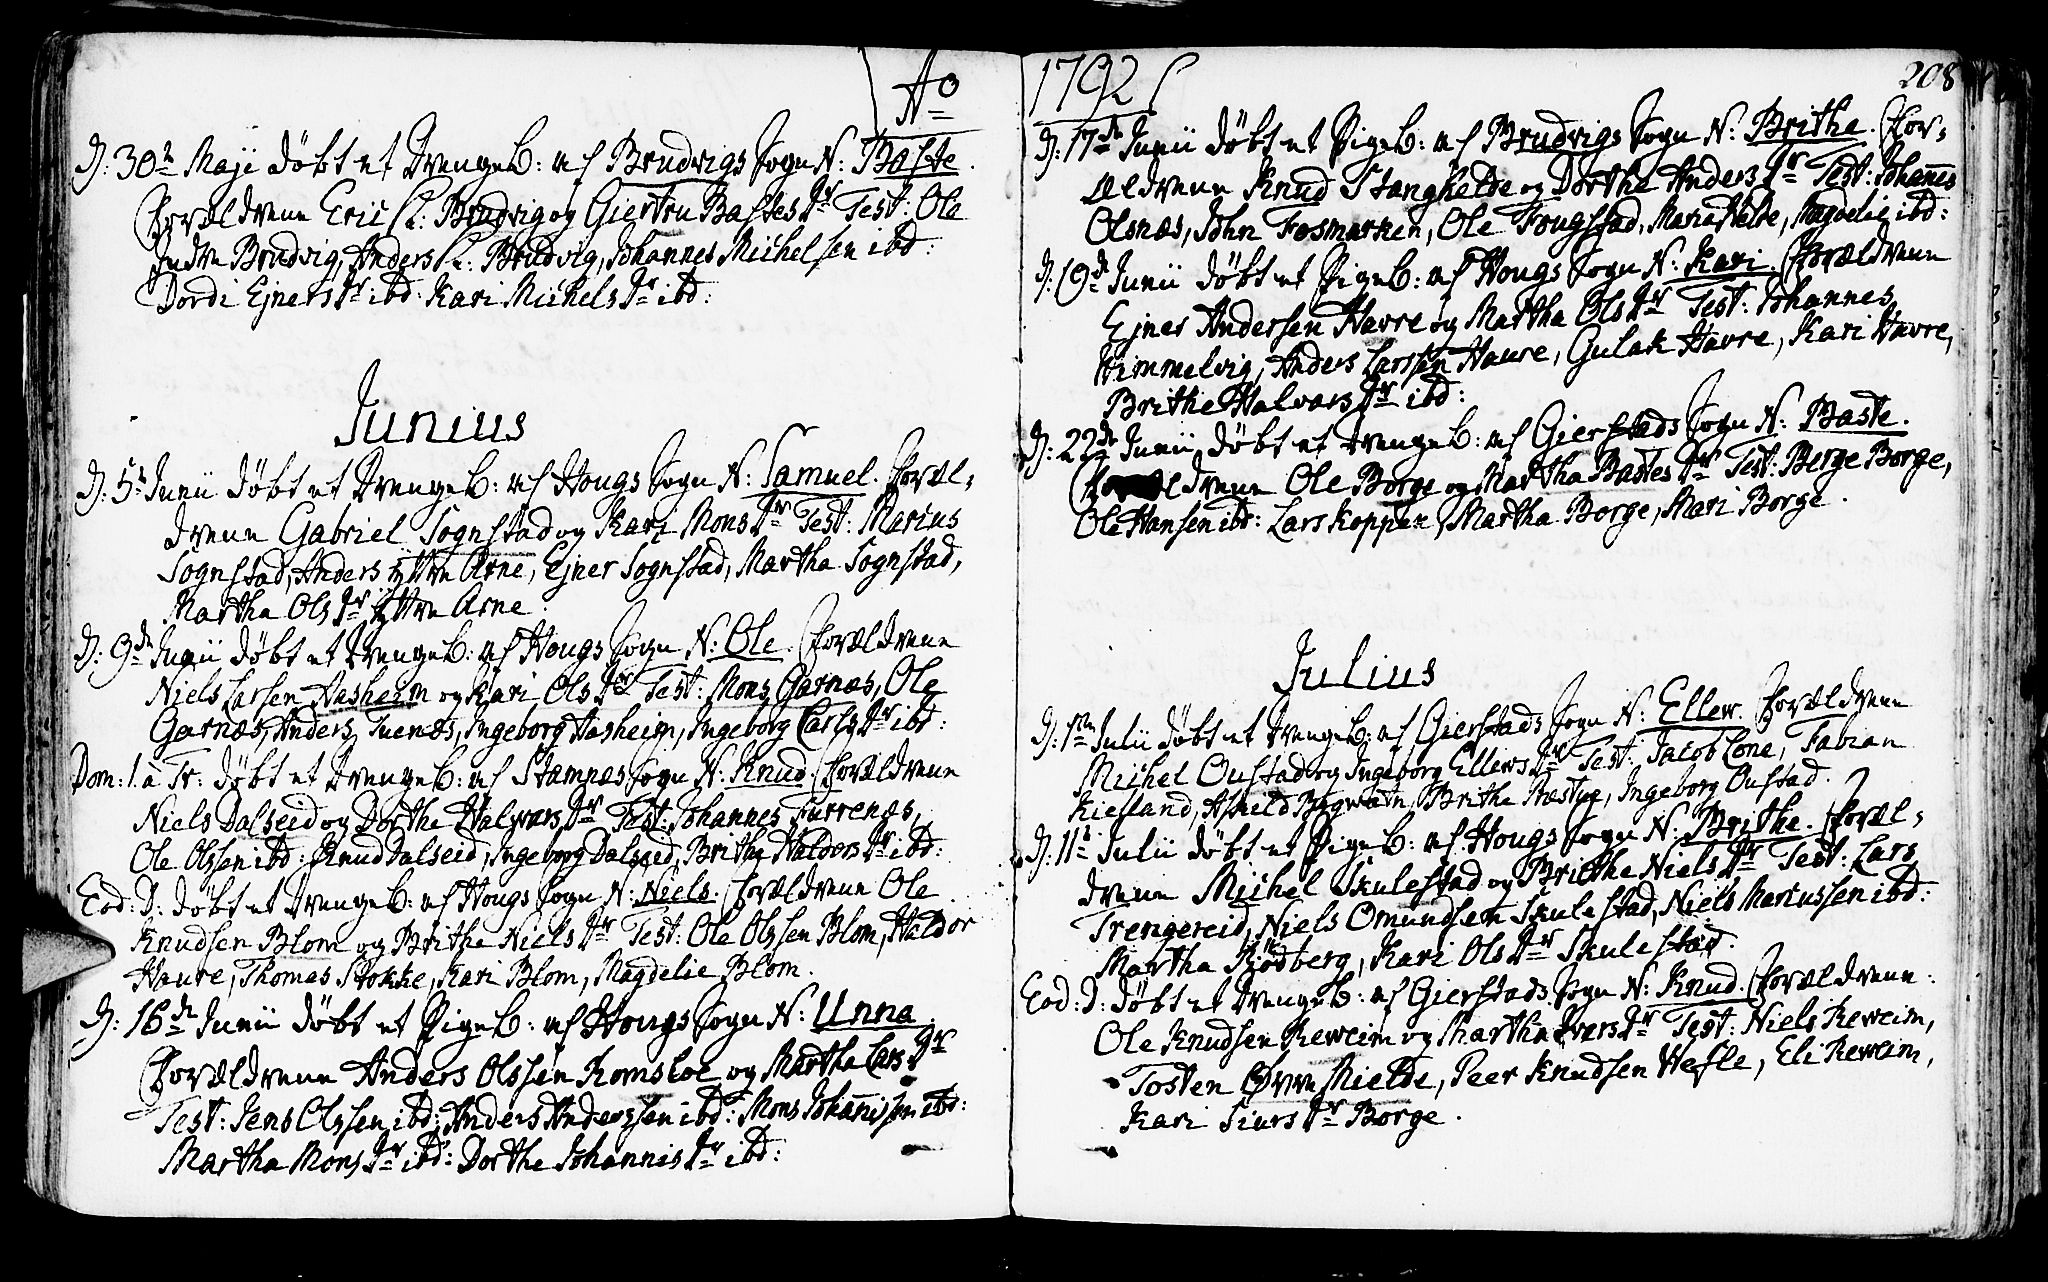 Ao
D: 30te Maji døbt et Drengeb: af Brudvigs Sogn N: Baste.
Forældrene Eric L: Brudvig og Giertru Bastes Dr Test: Ole
Indre Brudvig, Anders L: Brudvig, Johannes Michelsen ibd:
Dordi Ejners Dr ibd: Kari Michels Dr ibd:
Junius
D: 5t Junii døbt et Drengeb: af Hougs Sogn N: Samuel. Foræl-
drene Gabriel Sognstad og Kari Mons Dr Test: Marius
Sognstad, Anders Yttre Arne, Ejner Sognstad, Martha Sognstad,
Martha Ols Dr Yttre Arne.
D: 9de Junii døbt et Drengeb: af Hougs Sogn N: Ole. Forældrene
Niels Larsen Aasheim og Kari Ols Dr Test: Mons Garnæs, Ole
Garnæs, Anders Tuenæs, Ingeborg Aasheim, Ingeborg Carls Dr ibd:
Dom: 1. à Tr: døbt et Drengeb: af Stamnæs Sogn N: Knud. Forældrene
Niels Dalseid og Dorthe Halvars Dr Test: Johannes Furrenæs,
Ole Olssen ibd: Knud Dalseid, Ingeborg Dalseid, Brithe Haldors Dr ibd:
Eod: D: døbt et Drengeb: af Hougs Sogn N: Niels. Forældrene Ole
Knudsen Blom og Brithe Niels Dr Test: Ole Olssen Blom, Haldor
Havre, Thomas Stokke, Kari Blom, Magdelie Blom.
D: 16de Junii døbt et Pigeb: af Hougs Sogn N: Unna.
Forældrene Anders Olssen Romsloe og Martha Lars Dr
Test: Jens Olssen ibd: Anders Anderssen ibd: Mons Johannissen ibd:
Martha Mons Dr ibd: Dorthe Johannis Dr ibd:
1792
208
D: 17de Junii døbt et Pigeb: af Brudvigs Sogn N: Brithe. For-
ældrene Knud Stanghelde og Dorthe Anders Dr Test: Johannes
Olsnæs, John Fosmarken, Ole Fougstad, Maria Helde, Magdelie ibd:
D: 19de Junii døbt et Pigeb: af Hougs Sogn N: Kari. Forældrene
Ejner Andersen Havre og Martha Ols Dr Test: Johannes
Himmelvig, Anders Larssen Havre, Gulak Havre, Kari Havre,
Brithe Halvars Dr ibd:
D: 22de Junii døbt et Drengeb: af Gierstads Sogn N: Baste.
Forældrene Ole Borge og Martha Bastes Dr Test: Berge Borge,
Ole Hansen ibd: Lars Koppen, Martha Borge, Mari Borge.
Julius
D: 1ste Julii døbt et Drengeb: af Gierstads Sogn N: Ellew. Forældrene
Michel Oustad og Ingeborg Ellews Dr Test: Jacob Lone, Fabian
Kielland, Asfield Bogwatn, Brithe Træstye, Ingeborg Oustad.
D: 11te Julii døbt et Pigeb: af Hougs Sogn N: Brithe. Foræl-
drene Michel Skulestad og Brithe Niels Dr Test: Lars
Trengereid, Niels Omundsen Skulestad, Niels Mariussen ibd:
Martha Rødberg, Kari Ols Dr Skulestad.
Eod: D: døbt et Drengeb: af Gierstads Sogn N: Knud. Forældrene
Ole Knudsen Reweim og Martha Ivers Dr Test: Niels Reweim,
Tosten Øvre Mielde, Peer Knudsen Hesle, Eli Reweim,
Kari Siurs Dr Borge.